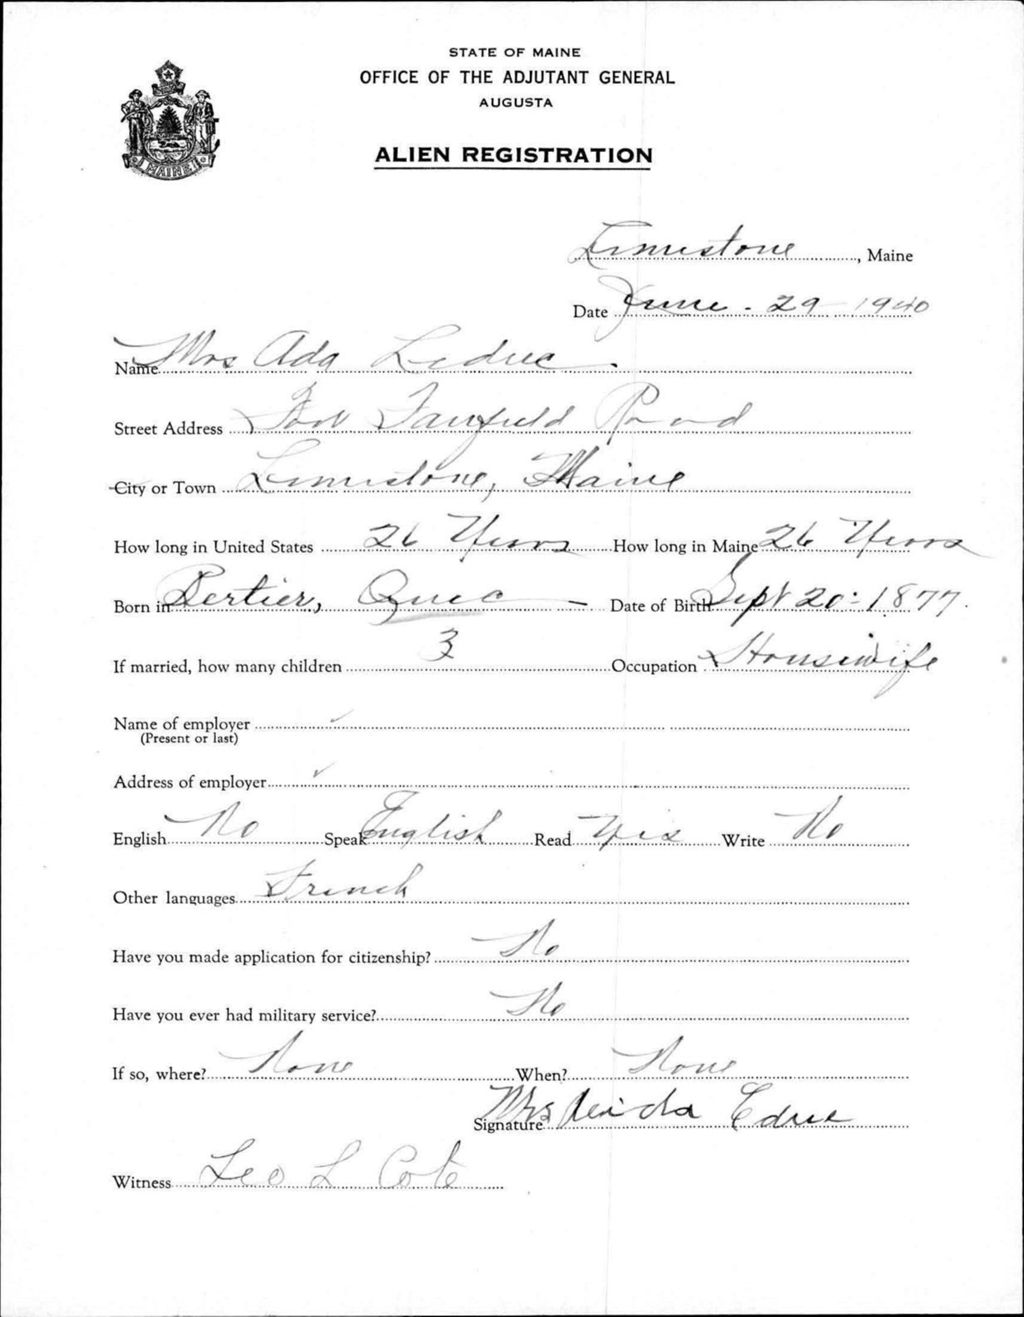 STATE OF MAINE
OFFICE OF THE ADJUTANT GENERAL
AUGUSTA
ALIEN REGISTRATION
MAINE
Limestone, Maine
Date June - 29 1940
Name Mrs Ada Leduc
Street Address Fort Fairfield Road
City or Town Limestone, Maine
How long in United States 26 Years How long in Maine 26 Years
Born in Bertier, Quec Date of Birth Sept 20 - 1877
If married, how many children 3 Occupation Housewife
Name of employer
(Present or last)
Address of employer
English No Speak English Read Yes Write No
Other languages French
Have you made application for citizenship? No
Have you ever had military service? No
If so, where? None When? None
Signature Mrs
Witness Leo L Cote